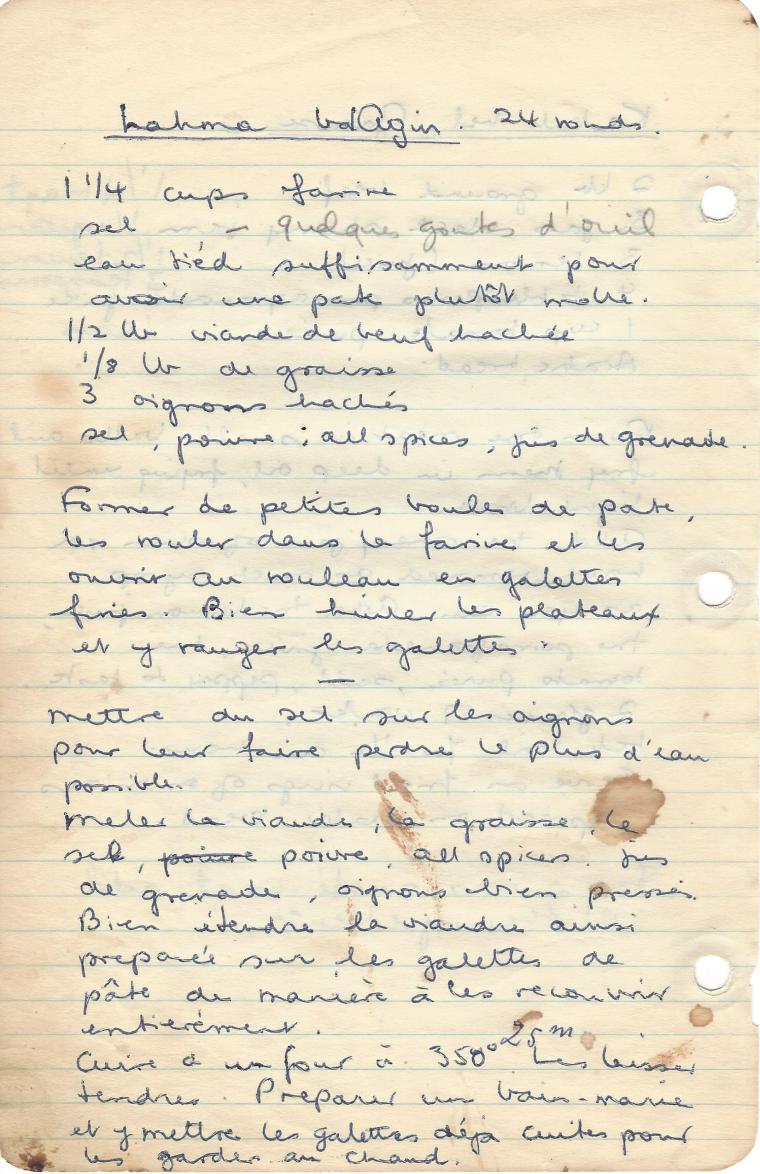 Lahma bd'Agin. 24 ronds.
1 1/4 cups farine
sel – quelques goutes d'ouil
eau tiéd suffisamment pour
avoir une pate plutôt molle.
1/2 lb viande de beuf hachée
1/8 lb de graisse
3 oignons hachés
sel, poivre, all spices, jus de grenade.
Former de petites boules de pate,
les rouler dans la farine et les
ouvrir au rouleau en galettes
fines. Bien huiler les plateaux
et y ranger les galettes.
—
mettre du sel sur les oignons
pour leur faire perdre le plus d'eau
possible.
meler la viande, la graisse, le
sel, poivre poivre, all spices. jus
de grenade, oignons bien pressés.
Bien étendre la viandre ainsi
preparée sur les galettes de
pâte de manière à les recouvrir
entierément.
Cuire a un four à 350° 25 m. Les laisser
tendres. Preparer un bain-marie
et y mettre les galettes déjà cuites pour
les garder au chaud.